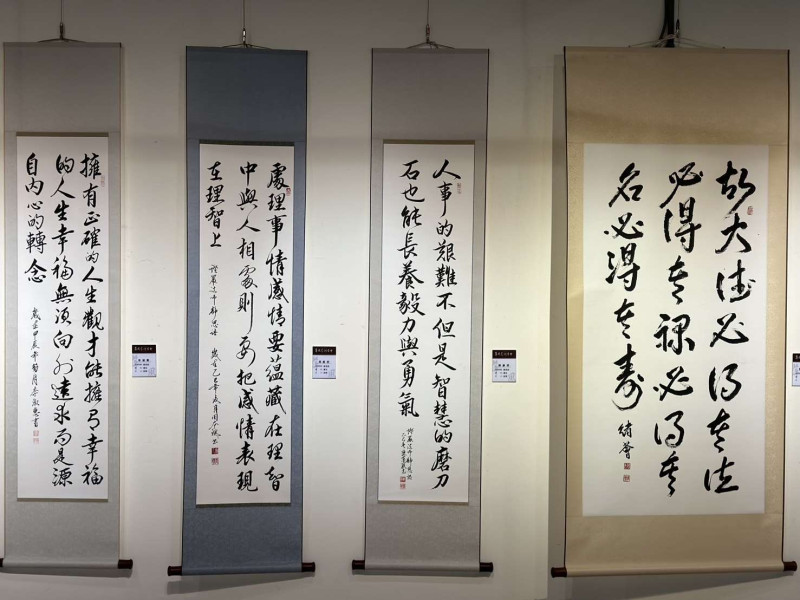 擁有正確的人生觀才能擁有幸福
的人生幸福無須向外遠求而是源
自內心的轉念
處理事情感情要蘊藏在理智
中與人相處則要把感情表現
在理智上
證嚴法師靜思語
人事的艱難不但是智慧的磨刀
石也能長養毅力與勇氣
證嚴法師靜思語
故大德必得其位
必得其祿必得其
名必得其壽